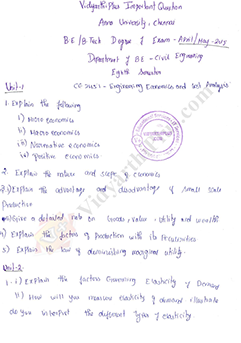 Vidyarthiplus Important Question
Anna University, Chennai
B.E / B.Tech Degree of Exam - April / May - 2015
Department of BE - Civil Engineering
Eighth Semester
Engineering Economics and Cost Analysis
Unit-1
1. Explain the following
i) Micro economics
ii) Macro economics
iii) Normative economics
iv) positive economics
2. Explain the nature and scope of economics
Explain the advantage and disadvantage of small scale
Production
a detailed note on Goods, value, utility and wealth
4) Explain the factors of production with its peculiarities
5) Explain the law of diminishing marginal utility.
Unit-2
1. i) Explain the factors Governing Elasticity of Demand
ii) How will you measure elasticity of demand illustrate
do you interpret the different types of elasticity.